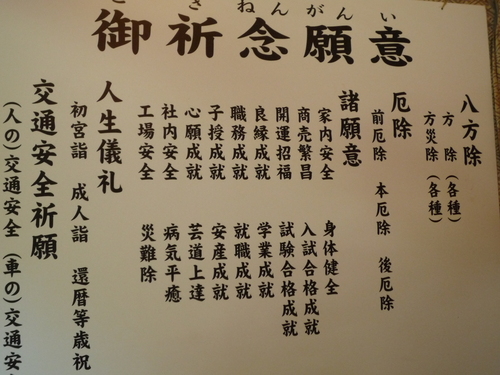 ご き ねんがんい
御祈念願意
八方除
方　除（各種）
方災除（各種）
厄除
前厄除　本厄除　後厄除
諸願意
家内安全　身体健全
商売繁昌　入試合格成就
開運招福　試験合格成就
良縁成就　学業成就
職務成就　就職成就
子授成就　安産成就
心願成就　芸道上達
社内安全　病気平癒
工場安全　災難除
人生儀礼
初宮詣　成人詣　還暦等歳祝
交通安全祈願
（人の）交通安全　（車の）交通安